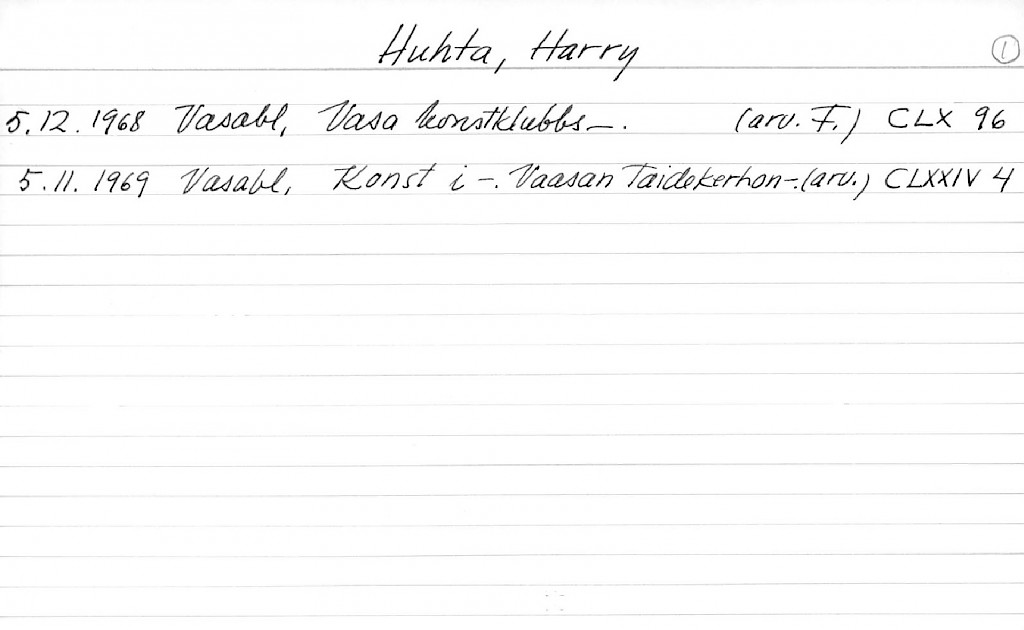 Huhta, Harry 1
5.12.1968 Vasabl, Vasa konstklubbs–. (arv. F.) CLX 96
5.11.1969 Vasabl, Konst i –. Vaasan Taidekerhon–. (arv.) CLXXIV 4